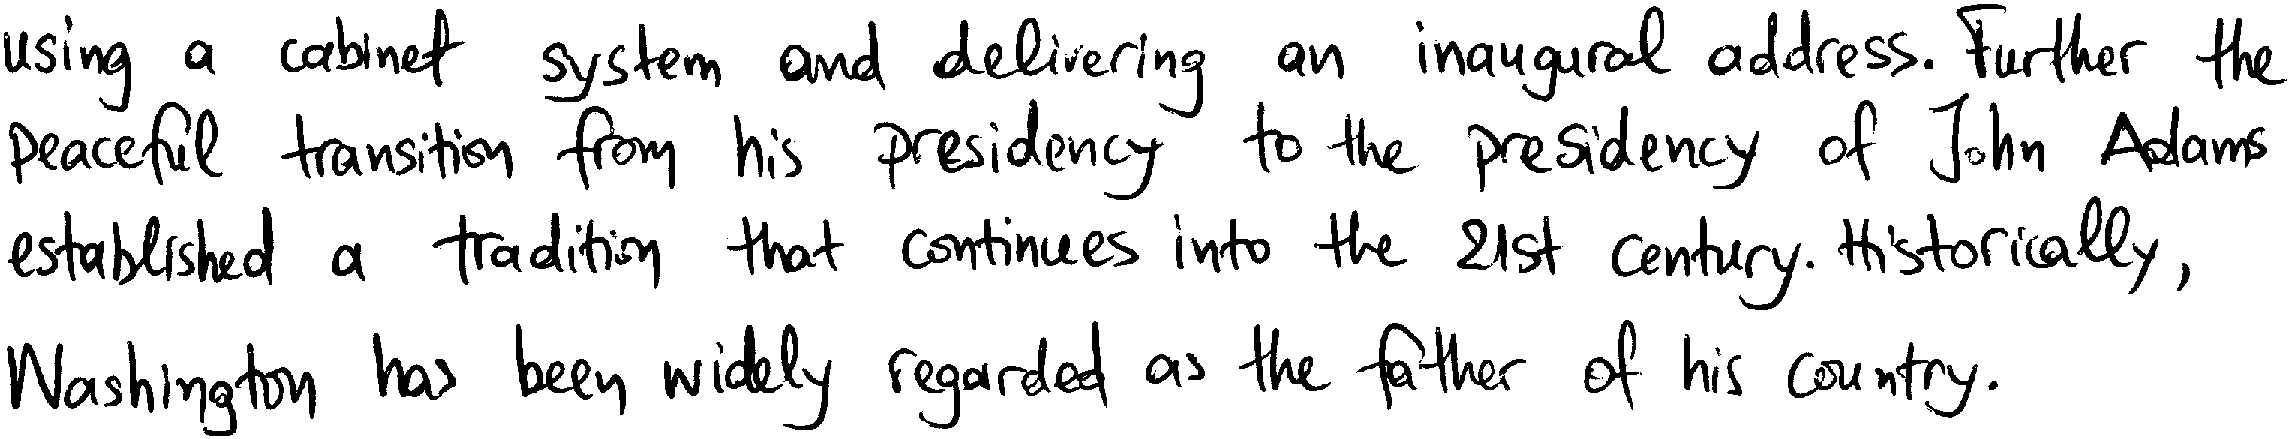 using a cabinet system and delivering an inaugural address. Further the
peaceful transition from his presidency to the presidency of John Adams
established a tradition that continues into the 21st century. Historically,
Washington has been widely regarded as the father of his country.